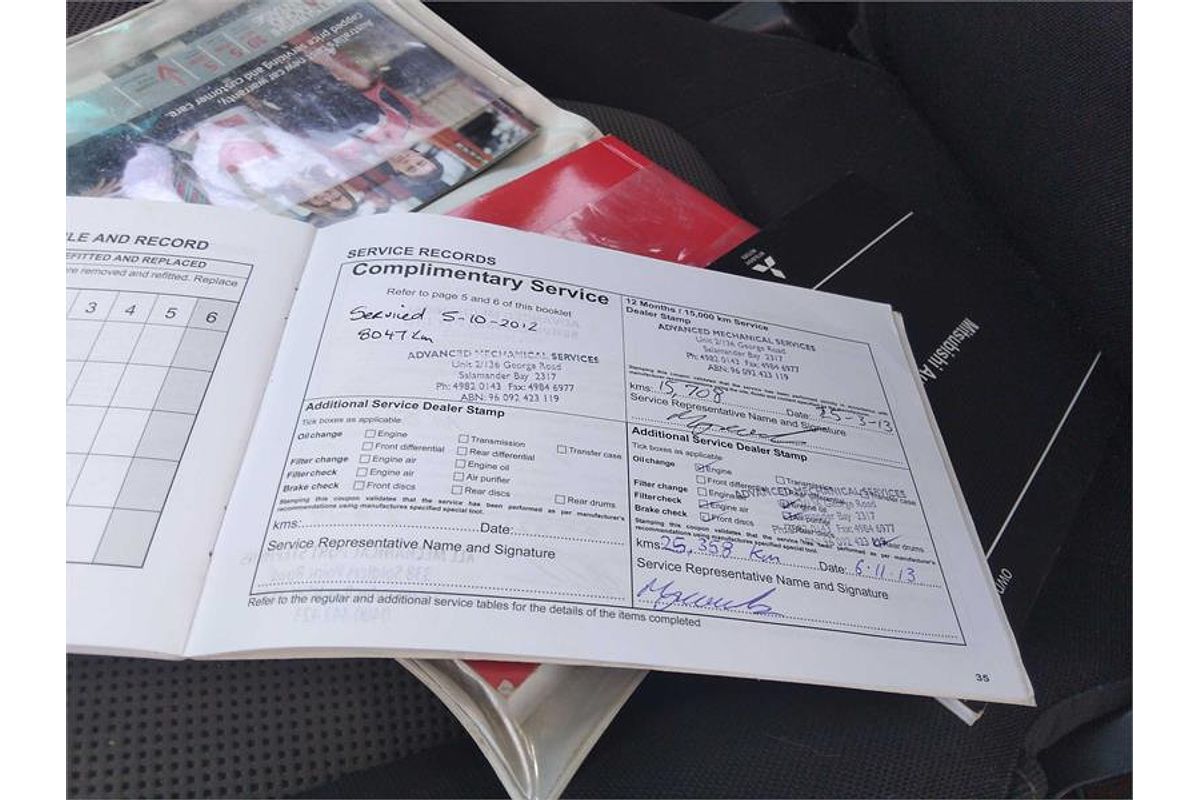 Australia's best new car warranty,
capped price servicing and customer care.
LE AND RECORD
EFITTED AND REPLACED
re removed and refitted. Replace
3 4 5 6
SERVICE RECORDS
Complimentary Service
Refer to page 5 and 6 of this booklet
Serviced 5-10-2012
8047 km
ADVANCED MECHANICAL SERVICES
Unit 2/136 George Road
Salamander Bay 2317
Ph: 4982 0143 Fax: 4984 6977
ABN: 96 092 423 119
Additional Service Dealer Stamp
Tick boxes as applicable
Oil change Engine Transmission Transfer case
Front differential Rear differential
Filter change Engine air Engine oil
Filter check Engine air Air purifier
Brake check Front discs Rear discs Rear drums
Stamping this coupon validates that the service has been performed as per manufacturer's
recommendations using manufactures specified special tool.
kms: Date:
Service Representative Name and Signature
Refer to the regular and additional service tables for the details of the items completed
12 Months / 15,000 km Service
Dealer Stamp
ADVANCED MECHANICAL SERVICES
Unit 2/136 George Road
Salamander Bay 2317
Ph: 4982 0143 Fax: 4984 6977
ABN: 96 092 423 119
kms: 15,708 Date: 25-3-13
Service Representative Name and Signature
Additional Service Dealer Stamp
Tick boxes as applicable
Oil change Engine Transmission
Front differential
Filter change Engine air
Filter check Engine air Air purifier
Brake check Front discs Rear drums
ADVANCED MECHANICAL SERVICES
George Road
Bay 2317
Fax: 4984 6977
092 423 119
Stamping this coupon validates that the service has been performed as per manufacturer's
recommendations using manufactures specified special tool.
kms 25,358 km Date: 6.11.13
Service Representative Name and Signature
35
MITSUBISHI
MOTORS
Mitsubishi Au
OWN